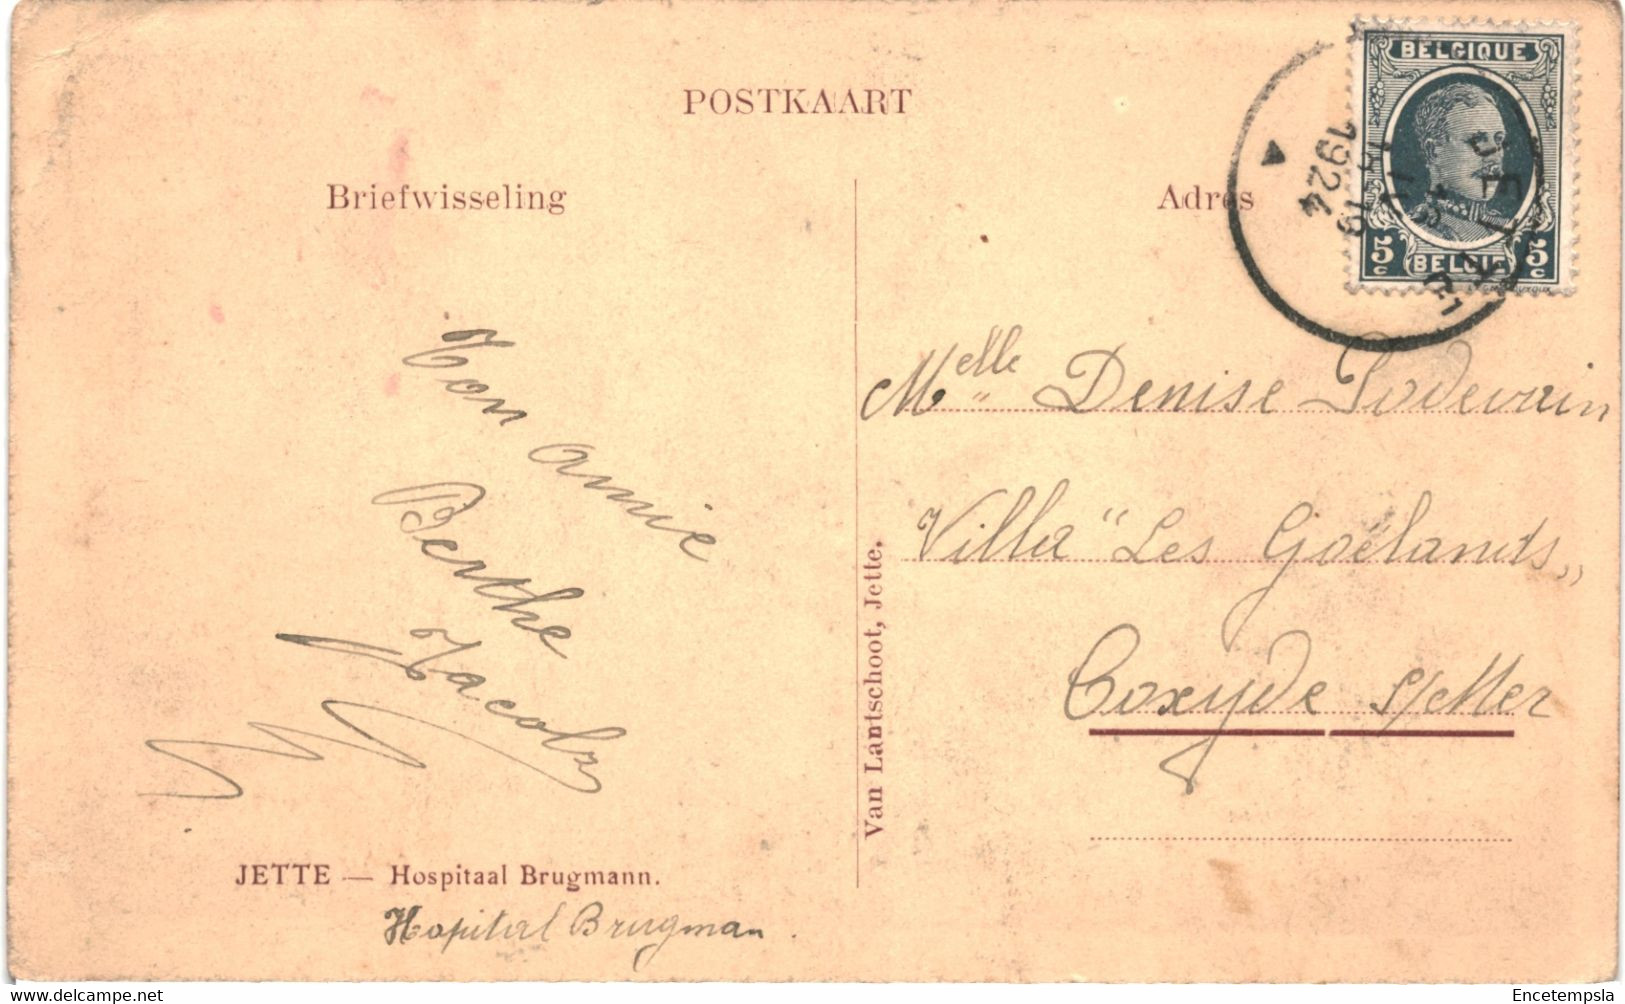 POSTKAART
Briefwisseling
Adres
BELGIQUE
5 c BELGIE 5 c
JETTE
1924
Melle Denise Lodevain
Villa "Les Goëlands„
Coxyde s/Mer
Ton amie
Berthe
Jacobs
Van Lantschoot, Jette.
JETTE — Hospitaal Brugmann.
Hopital Brugman.
www.delcampe.net
Encetempsla